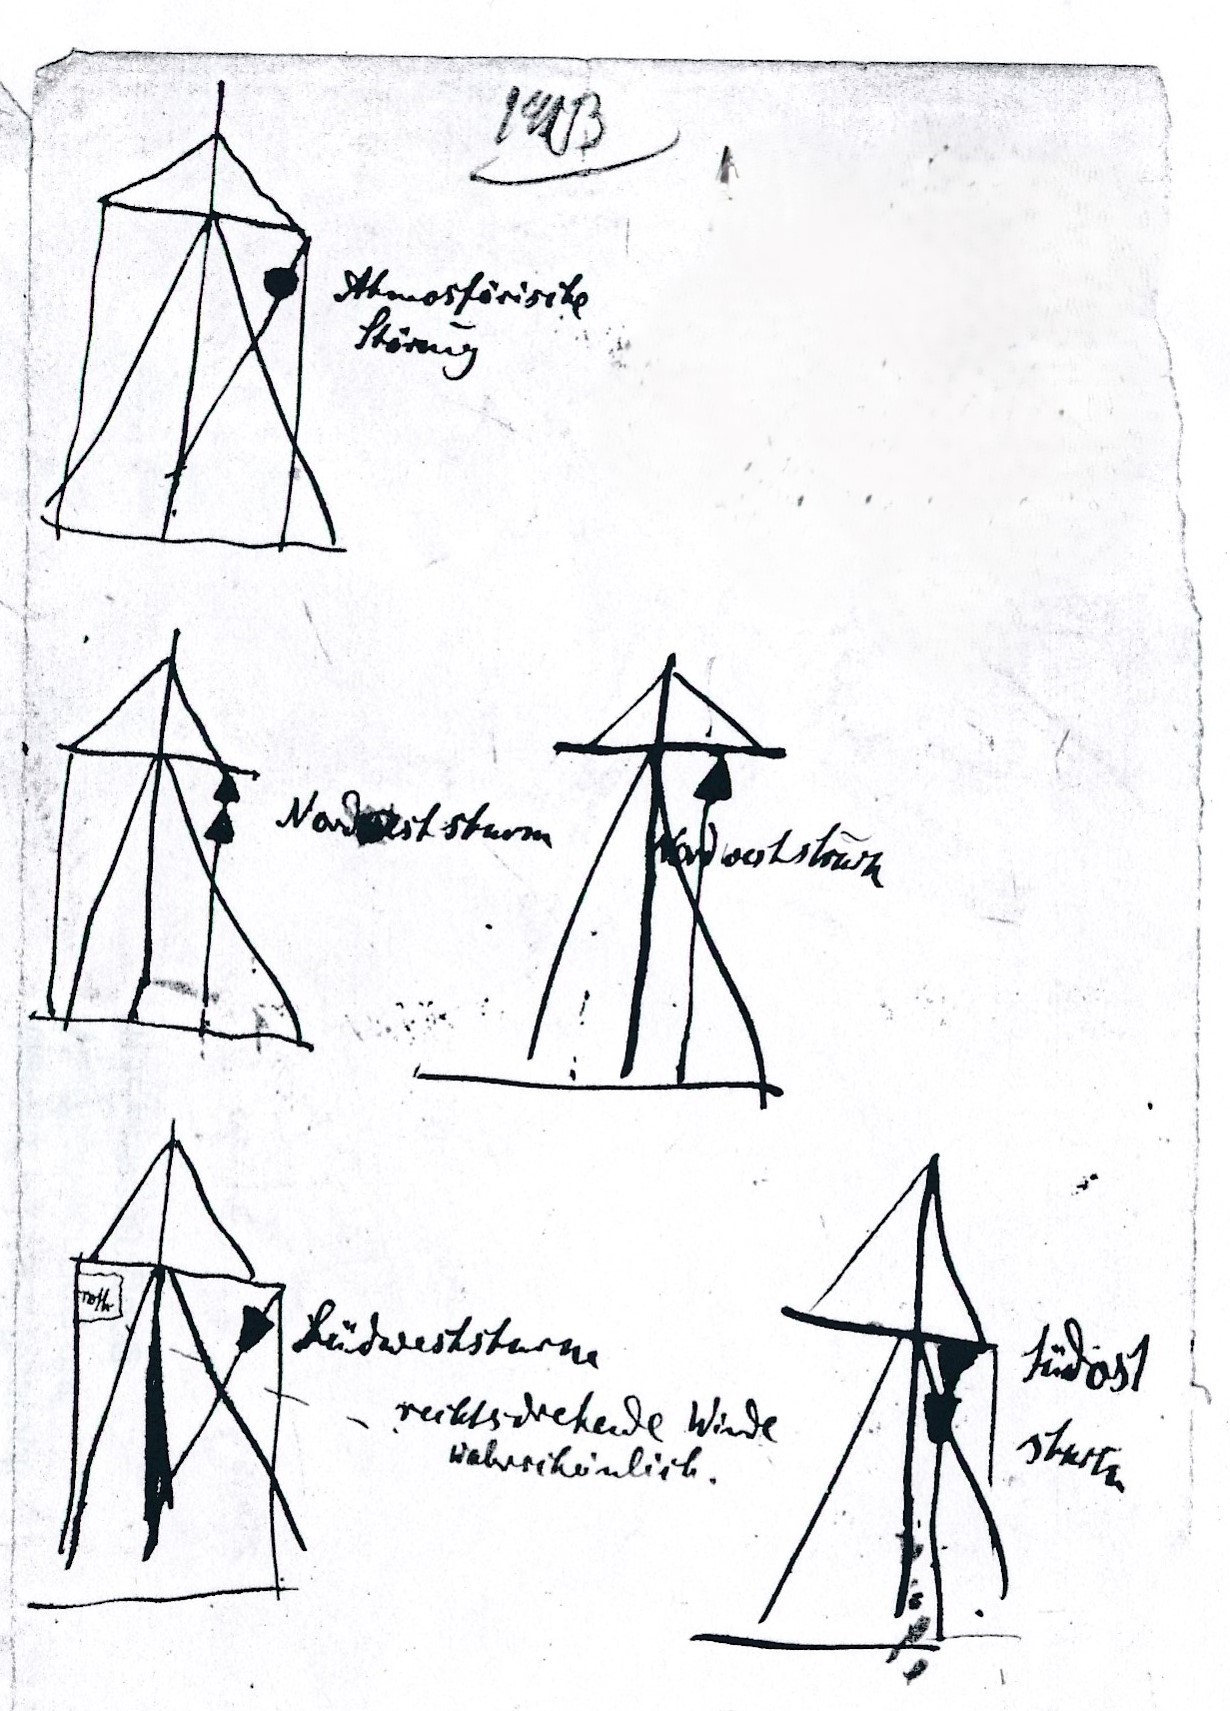 Atmosfärische
Störung
Nordoststurm
Nordweststurm
roth
Südweststurm
rechtsdrehende Winde
wahrscheinlich.
Südost
sturm